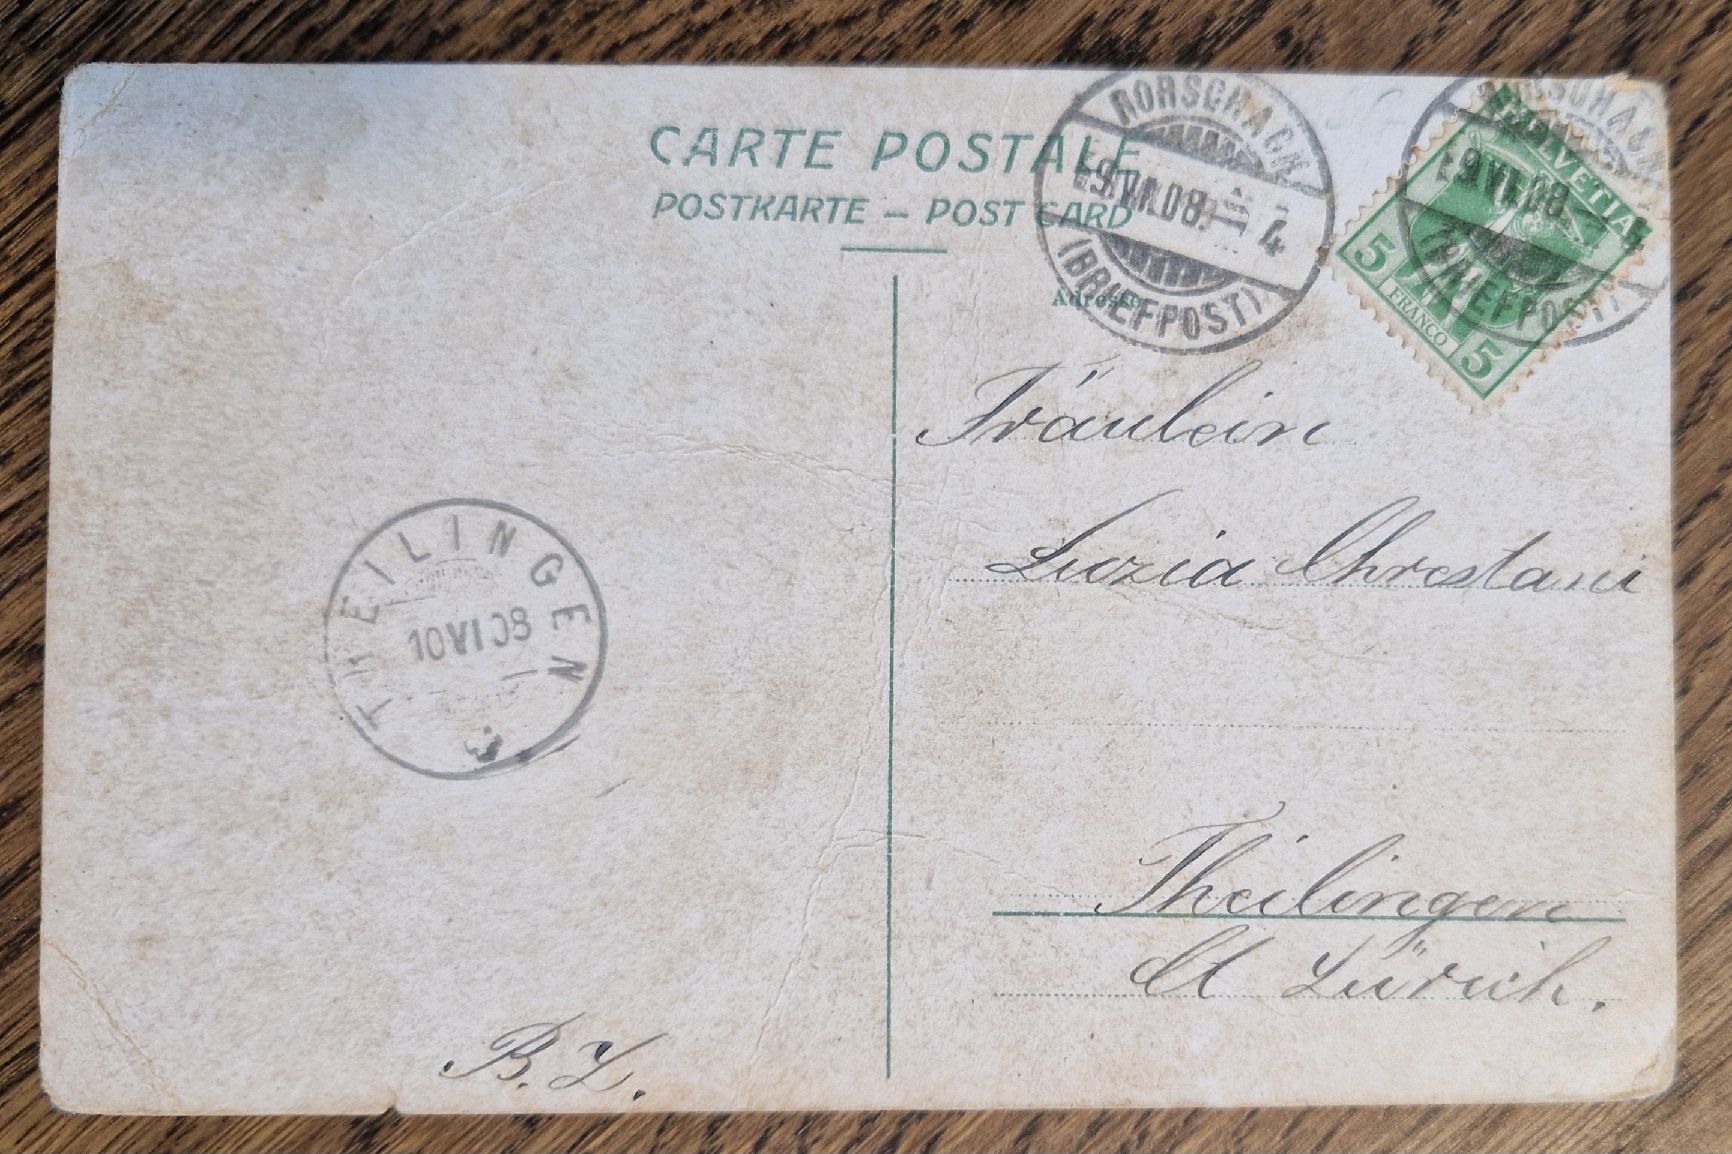 CARTE POSTALE
POSTKARTE – POST CARD
RORSCHACH
9.VI.08. 4
(BRIEFPOST)
RORSCHACH
9.VI.08.
(BRIEFPOST)
HELVETIA
5 FRANCO 5
Adresse
Fräulein
Luzia Chrestani
THEILINGEN
10 VI 08
Theilingen
Ct Zürich.
B. Z.